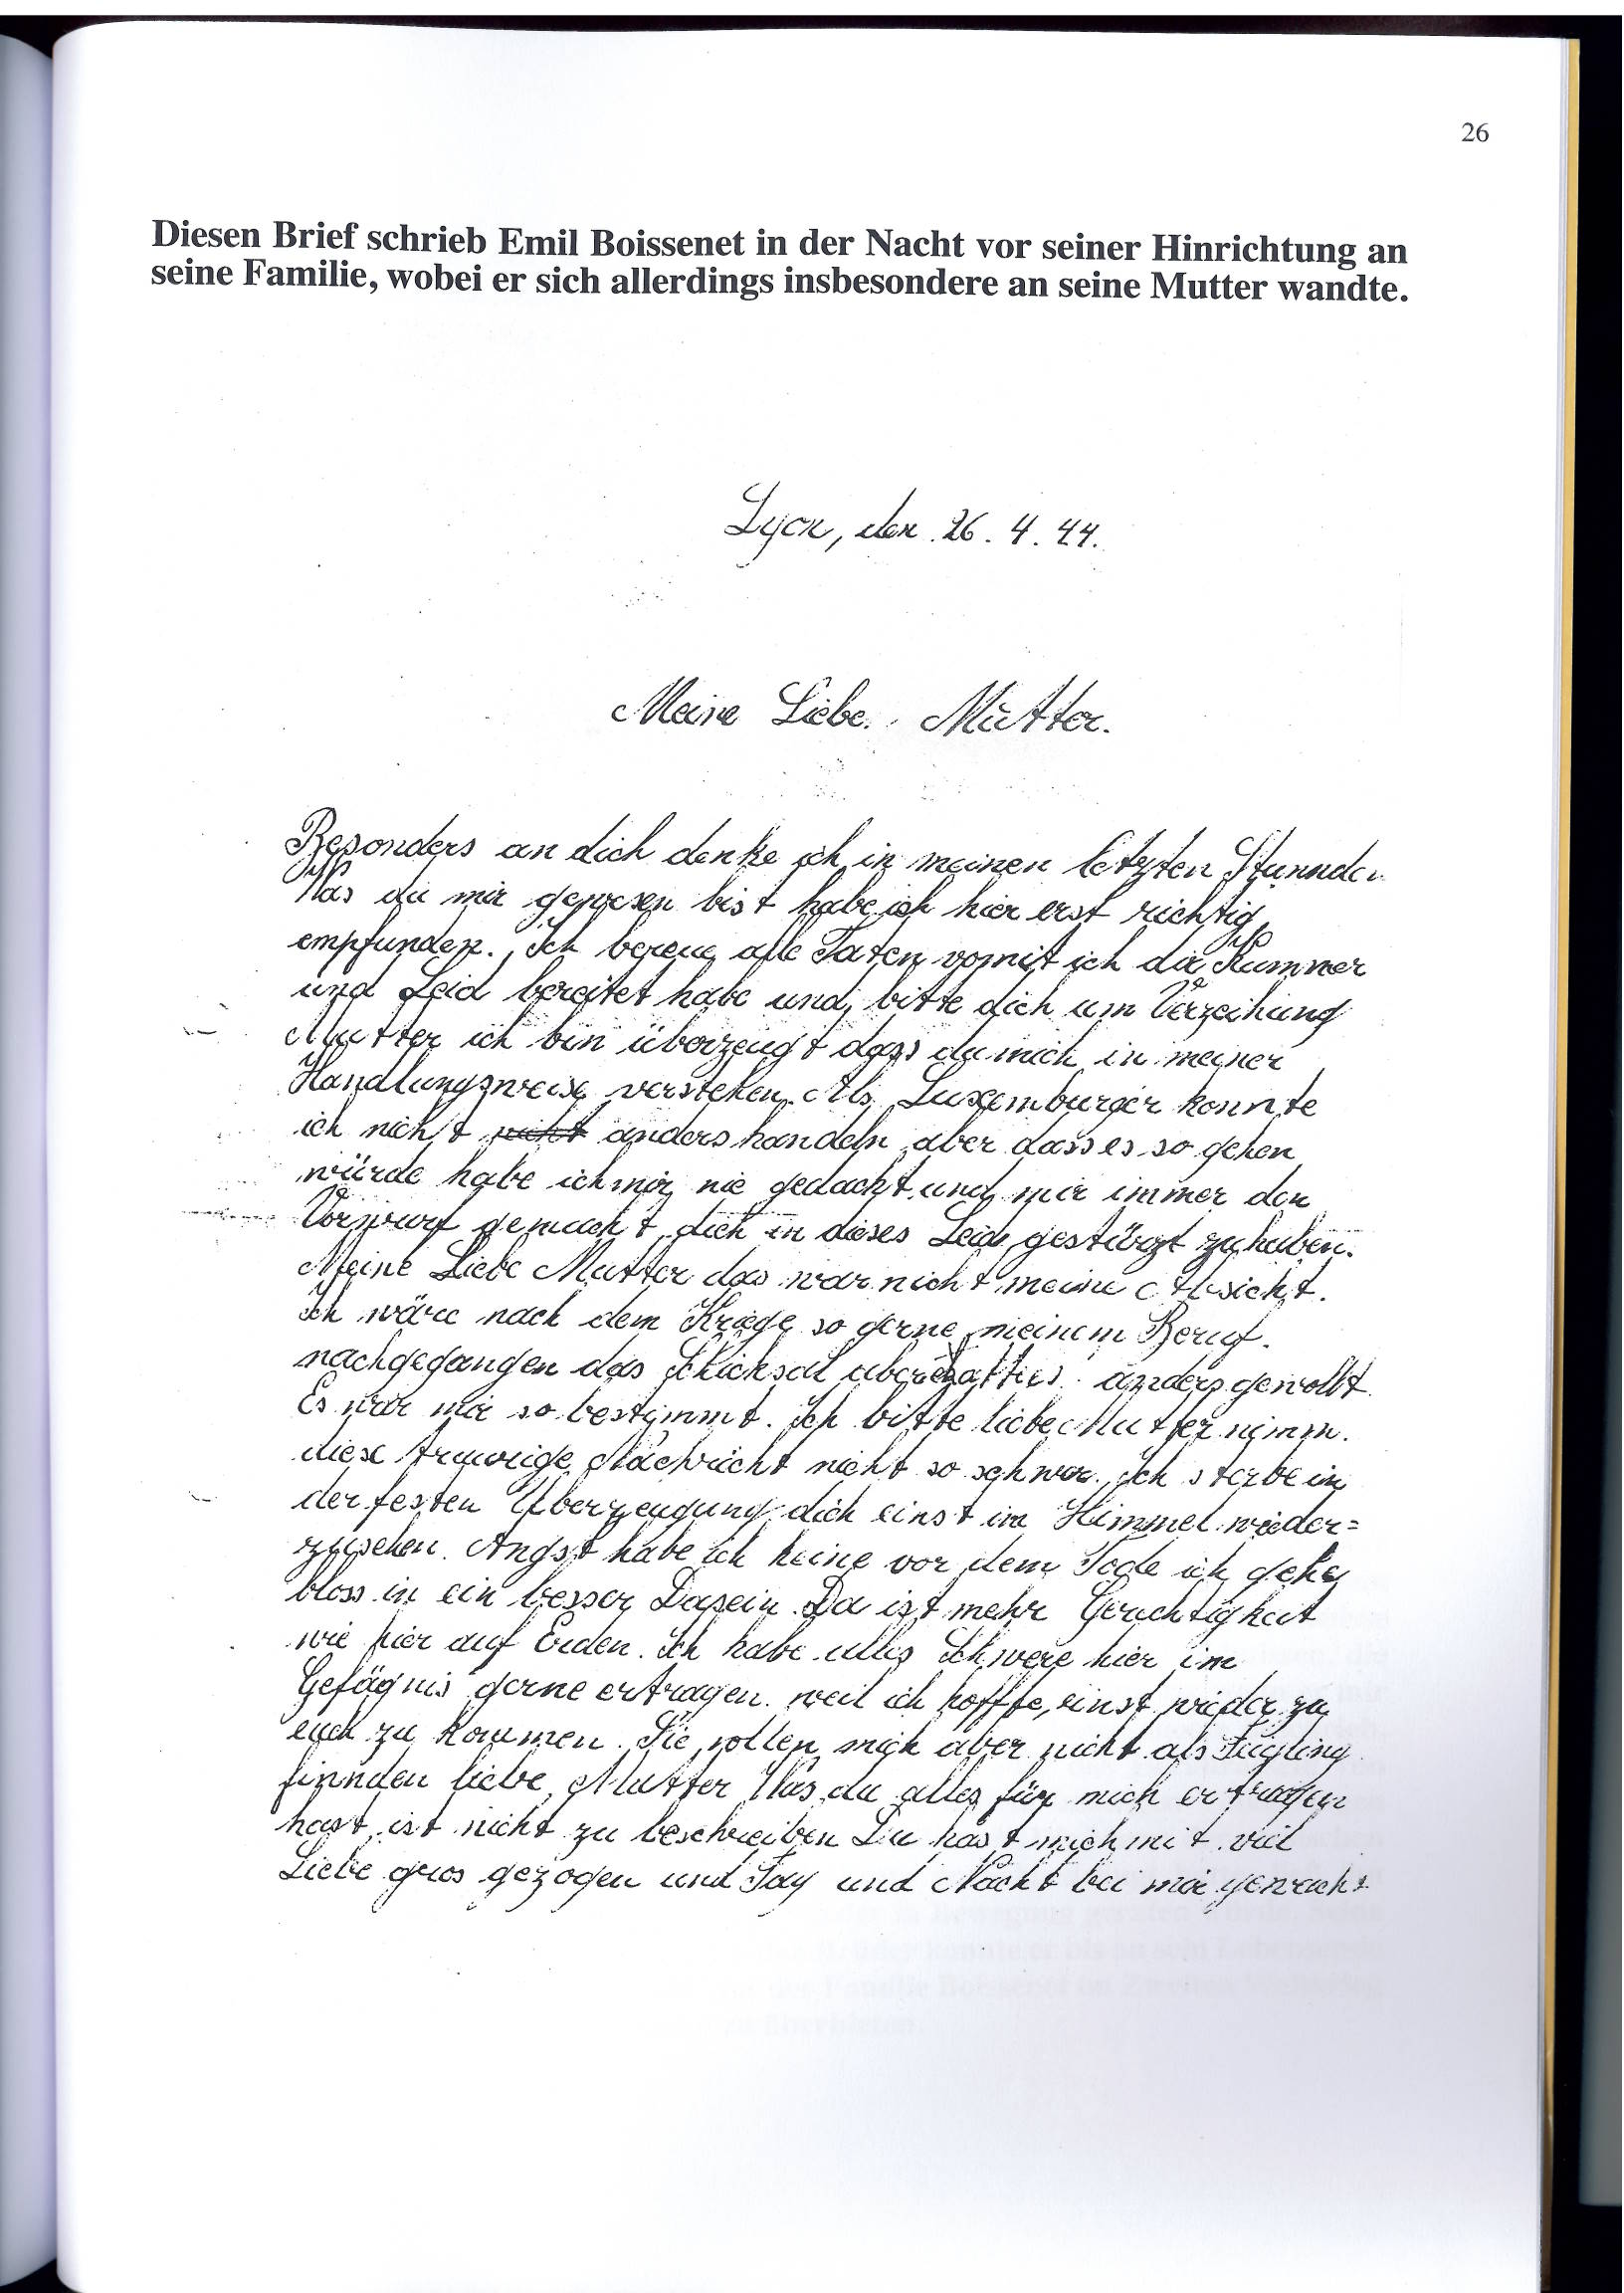 26
Diesen Brief schrieb Emil Boissenet in der Nacht vor seiner Hinrichtung an
seine Familie, wobei er sich allerdings insbesondere an seine Mutter wandte.
Lyon, den 26. 4. 44.
Meine Liebe Mutter.
Besonders an dich denke ich in meinen letzten Stunnden
Was du mir gewesen bist habe ich hier erst richtig
empfunden. Ich bereue alle Taten womit ich dir Kummer
und Leid bereitet habe und bitte dich um Verzeihung
Mutter ich bin überzeugt dass du mich in meiner
Handlungsweise verstehen. Als Luxemburger konnte
ich nicht nicht anders handeln aber dass es so gehen
würde habe ich mir nie gedacht und mir immer den
Vorwurf gemacht dich in dieses Leid gestürzt zu haben.
Meine Liebe Mutter das war nicht meine Absicht.
Ich wäre nach dem Kriege so gerne meinem Beruf.
nachgegangen das Schicksal aber hatt es anders gewollt
Es war mir so bestimmt. Ich bitte liebe Mutter nimm.
diese traurige Nachricht nicht so schwer. Ich sterbe in
der festen Überzeugung dich einst im Himmel wieder=
zusehen. Angst habe ich keine vor dem Tode ich gehe
bloss in ein besser Dasein. Da ist mehr Gerechtigkeit
wie hier auf Erden. Ich habe alles Schwere hier im
Gefägnis gerne ertragen. weil ich hoffte, einst wieder zu
euch zu kommen. Sie sollen mich aber nicht als Feigling
finnden liebe Mutter Was du alles für mich ertragen
hast ist nicht zu beschreiben Du hast mich mit viel
Liebe gros gezogen und Tag und Nacht bei mir gewacht